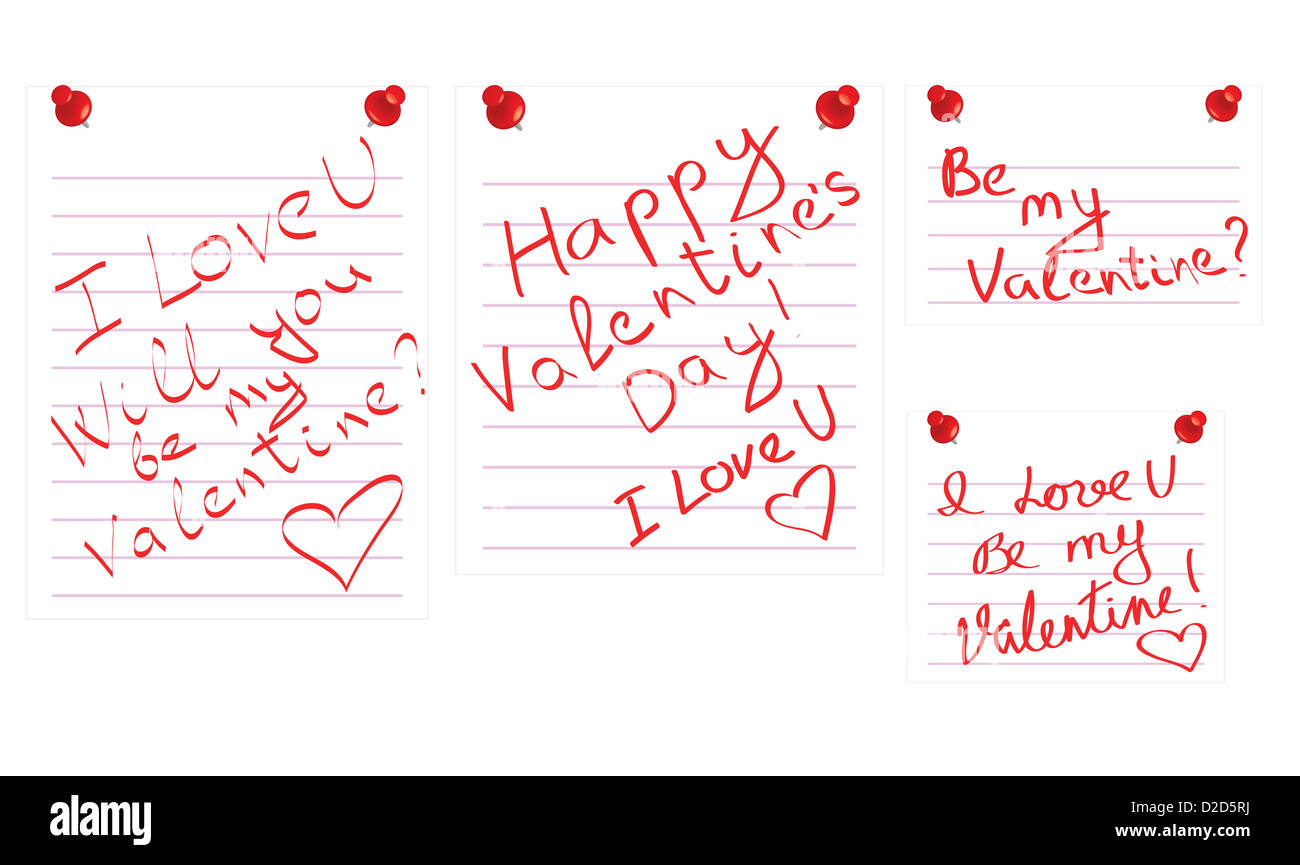 I Love U
Will you
be my
Valentine?
Happy
Valentine's
Day!
I Love U
Be
my
Valentine?
I Love U
Be my
Valentine!
alamy
Image ID: D2D5RJ
www.alamy.com